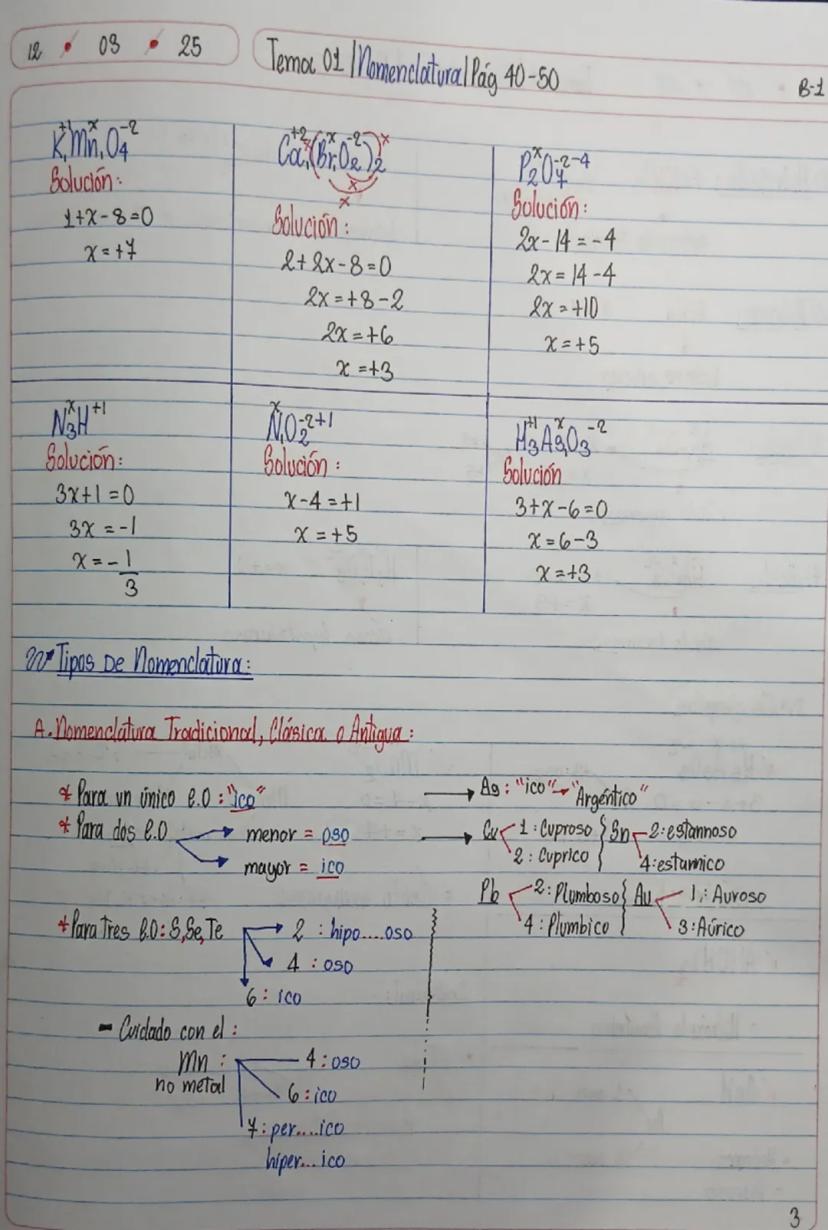 12 • 03 • 25
Tema 01 | Nomenclatura | Pág 40-50
B-1
K₁⁺¹Mn₁ˣO₄⁻²
Solución:
1+x-8=0
x=+7
Ca₁⁺²(Br₁ˣO₂⁻²)₂
x
x
x
x
Solución:
2+2x-8=0
2x=+8-2
2x=+6
x=+3
P₂ˣO₇⁻²⁻⁴
Solución:
2x-14=-4
2x=14-4
2x=+10
x=+5
N₃ˣH⁺¹
Solución:
3x+1=0
3x=-1
x=-1/3
N₁ˣO₂⁻²⁺¹
Solución:
x-4=+1
x=+5
H₃⁺¹As₁ˣO₃⁻²
Solución
3+x-6=0
x=6-3
x=+3
Tipos De Nomenclatura:
A. Nomenclatura Tradicional, Clásica o Antigua:
* Para un único e.o: "ico" → Ag: "ico" → "Argéntico"
* Para dos e.o → menor = oso → Cu 1: Cuproso } Sn 2: estannoso
mayor = ico 2: Cuprico 4: estannico
Pb 2: Plumboso } Au 1,: Auroso
4: Plumbico 3: Aúrico
* Para Tres E.O: S,Se,Te → 2 : hipo....oso
4 : oso
6: ico
- Cuidado con el:
Mn : 4: oso
no metal 6: ico
7: per....ico
hiper...ico
3